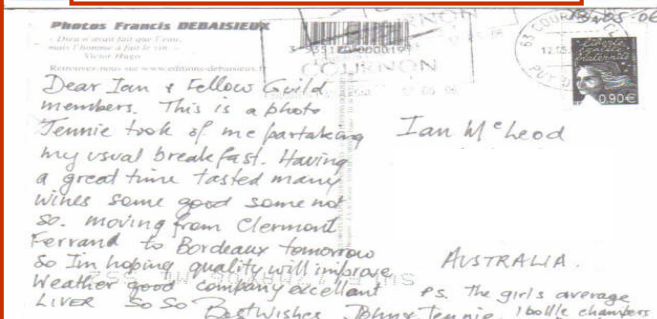 Photos Francis DEBAISIEUX
« Dieu n'avait fait que l'eau,
mais l'homme a fait le vin. »
Victor Hugo
Retrouvez-nous sur www.editions-debaisieux.
COURNON
63 COURNON
0,90€
Dear Ian & Fellow Guild
members. This is a photo
Jennie took of me partaking
my usual breakfast. Having
a great time tasted many
wines some good some not
so. moving from Clermont
Ferrand to Bordeaux tomorrow
So Im hoping quality will improve
Weather good company excellent
LIVER So So Best Wishes John & Jennie.
Ian McLeod
AUSTRALIA.
Ps. The girls average
1 bottle chambers